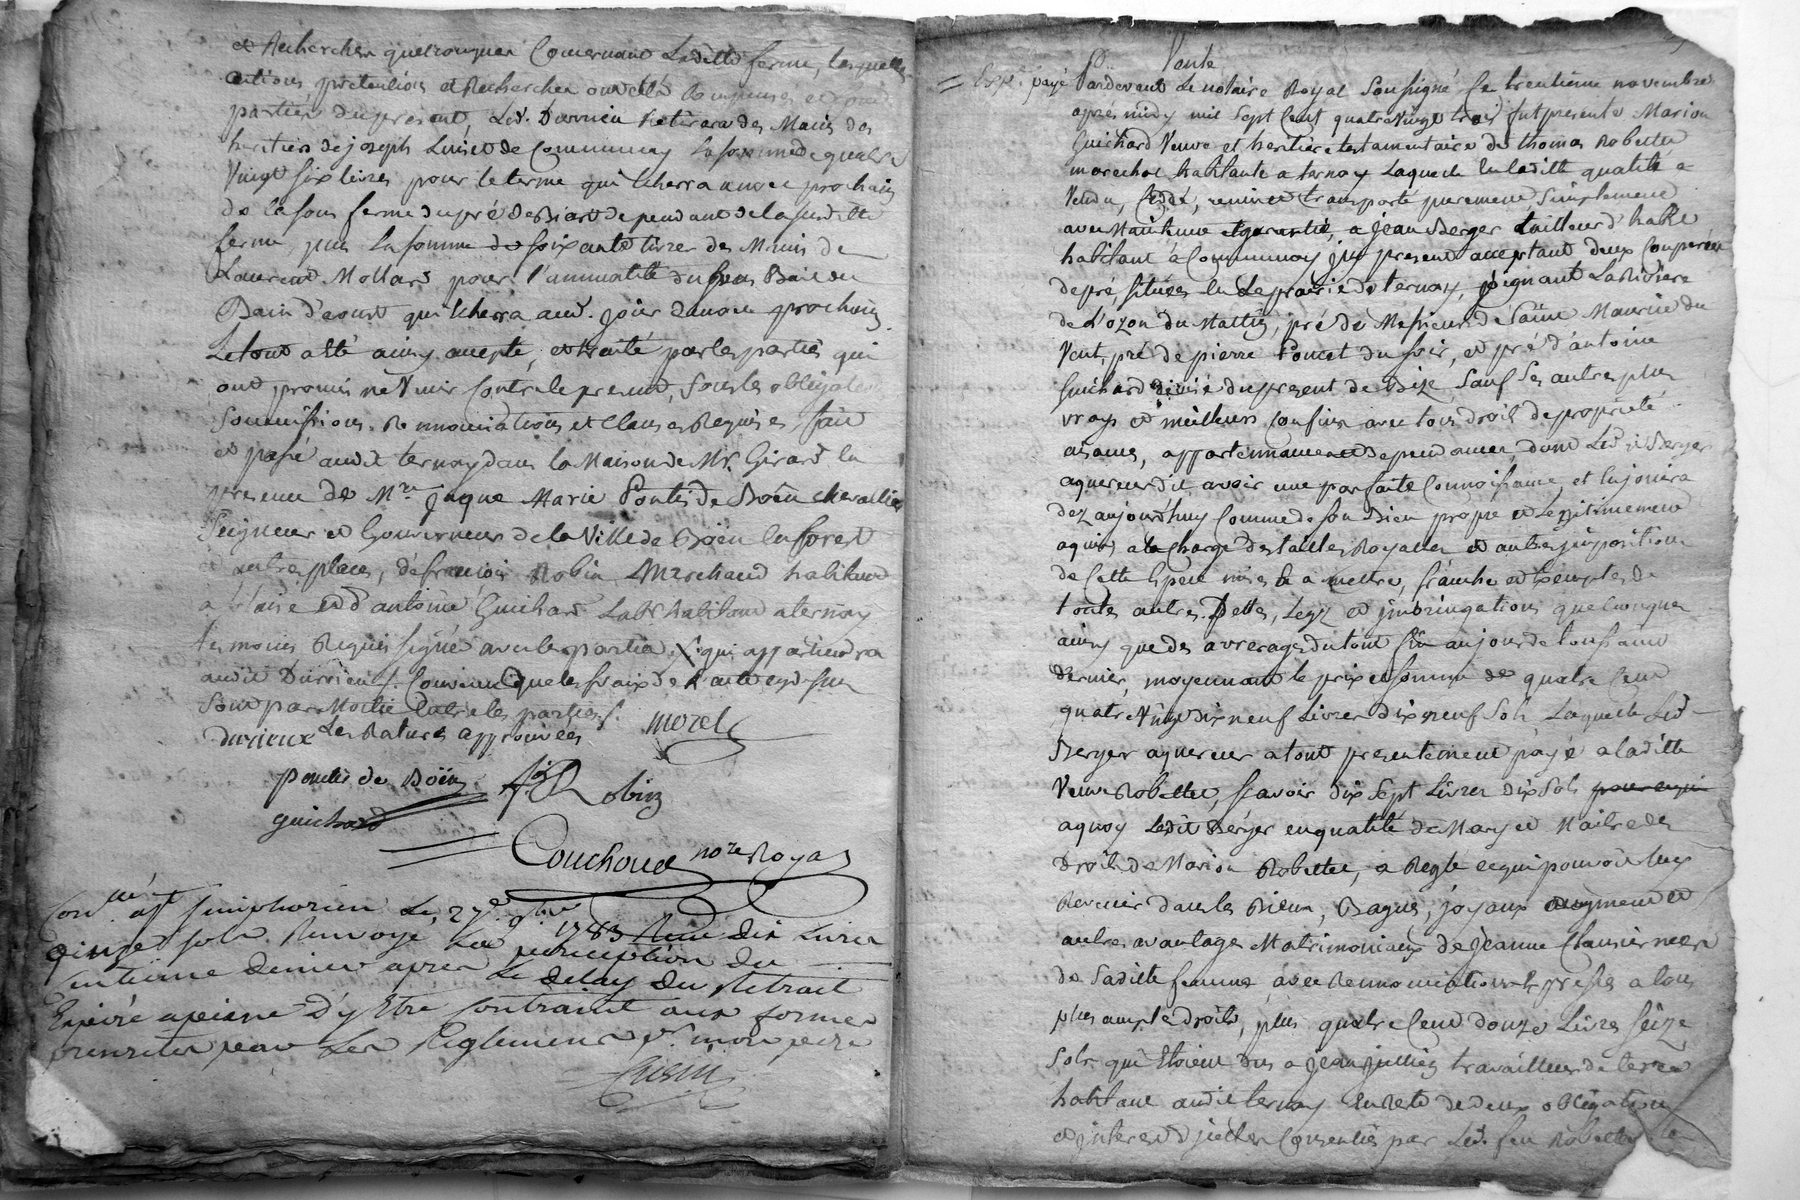 et Recherches quelconques Concernant Ladite ferme, lesquelles
actions pretentions et Recherches
parties du present, Led. Durrieu Retirera des Mains des
heritiers de joseph de Communay La somme de quatre
Vingt six livres pour le terme qui écherra annee prochain
de la sous ferme du pré de Biard dependant de la susditte
ferme, plus La somme de soixante livres des Mains de
Laurent Mollard pour l'annualité du sous Bail du
Bain qui écherra aud. jour d'annee prochain
Le tout a été ainsy accepté, et traité par les parties qui
ont promis ne Venir Contre le present, sous les obligations
Soumissions, Renonciations et Clauses Requises, fait
et passé audit ternay dans la Maison de Mr. Girard en
presence de Mre. Jaque Marie Pontis de Boën chevallier
Seigneur et Gouverneur de la Ville de Boën en forest
et autres places, de francois Robin Marchand habitant
a et d'antoine Guichard Labr. habitant a ternay
temoins Requis signé avec les parties, qui appartiendra
audit Durrieu. Convenu que les fraix de l'acte cy dessus
Sont par Moitié Entre les parties.
Les Ratures approuvées morel
durieux
pontis de Boën fs Robin
guichard
Couchoud nore Royal
Con. a st simphorien Le 27e. 9bre 1783 Reçu dix Livres
quinze sols. Renvoyé La perception du
centieme denier apres Le delay du Retrait
Expiré a peine D'y Etre contraint aux formes
prescrites par Les Reglemens pr. mon pere

Vente
Exp. payé Pardevant Le notaire Royal Soussigné Le trentieme novembre
aprés midy mil sept Cent quatre vingt trois fut presente Marion
Guichard Veuve et heritiere testamentaire de thomas Robetter
marechal habitante a ternay Laquelle en ladite qualité a
Vendu, Cedé, remis et transporté purement Simplement
avec Maintenue et garantie, a jean Berger tailleur d'habit
habitant a Communay icy present acceptant deux Couperées
de pré, situées en La prairie de ternay, joignant La Riviere
de L'ozon du Mattin, pré de Messieurs de Saint Maurice du
Vent, pré de pierre Poncet du soir, et pré d'antoine
Guichard divisé du present de Bize Sauf Ses autres plus
vrays et meilleurs confins avec tous droits de proprieté
aisances, appartenances et dependances dont Led. sr Berger
aquereur dit avoir une parfaite Connoissance, et en jouira
dez aujourd'huy Comme de son Bien propre et Legitimement
aquis a la charge des tailles Royalles et autres impositions
de Cette Espece mises & a mettre, franche et Exemptes de
toutes autres Dettes, Legs et impringations quelconques
ainsy que des arrerages du tout au jour de toussaint
dernier, moyennant le prix et somme de quatre Cent
quatre Vingt dix neuf Livres dix neuf Sols Laquelle Led.
Berger aquereur a tout presentement payé a ladite
Veuve Robetter, scavoir dix sept Livres dix sols
aquoy Ledit Berger en qualité de Mary et Maitre des
droits de Marion Robetter, a Reglé ce qui pouvoit luy
Revenir dans les Biens, Bagues, joyaux augment et
autres avantages Matrimoniaux de jeanne Clausier mere
de Sadite femme, avec Renonciation a tous
plus amples droits, plus quatre Cent douze Livres seize
Sols qui Etoient dus a jean jullien travailleur de terre
habitant audit ternay En Reste de deux obligations
et interets d'jcelles Consenties par Led. feu Robetter